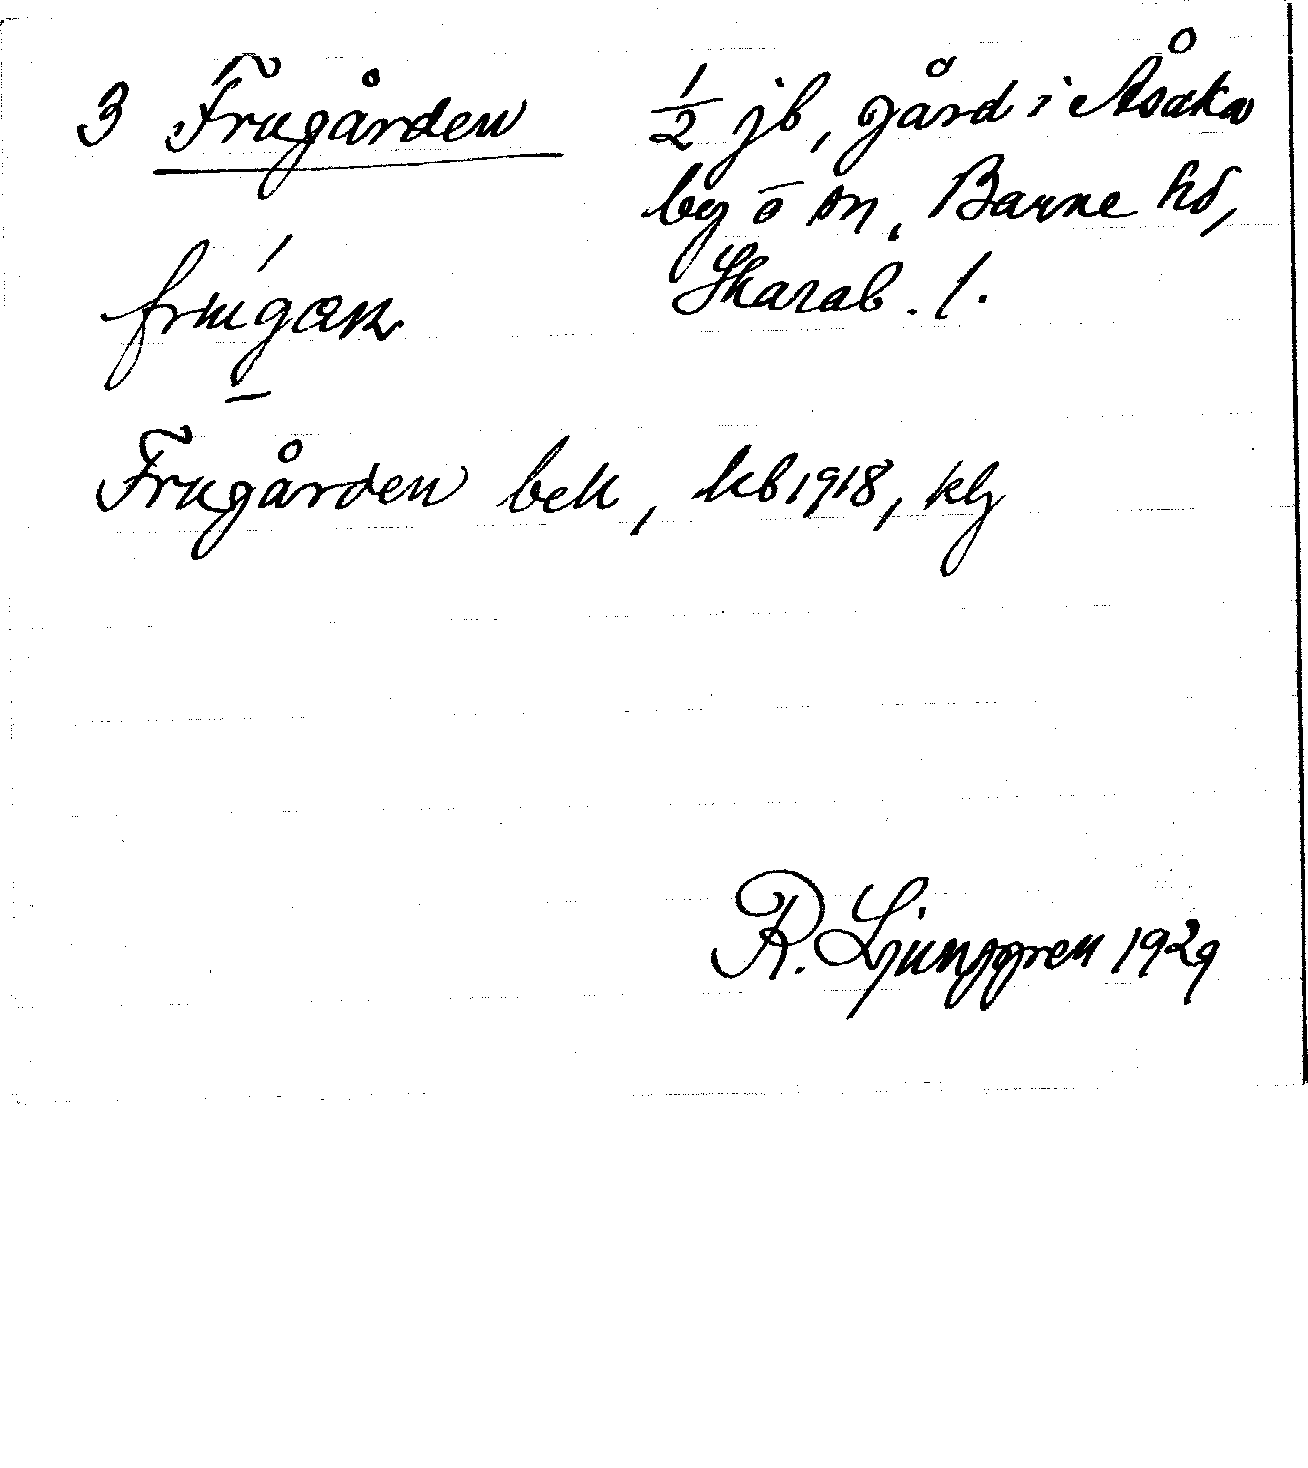 3 Frugården
½ jb, gård i Åsaka
by o sn, Barne hd,
Skarab. l.
Frugården bek, kb 1918, klj
R. Ljunggren 1929